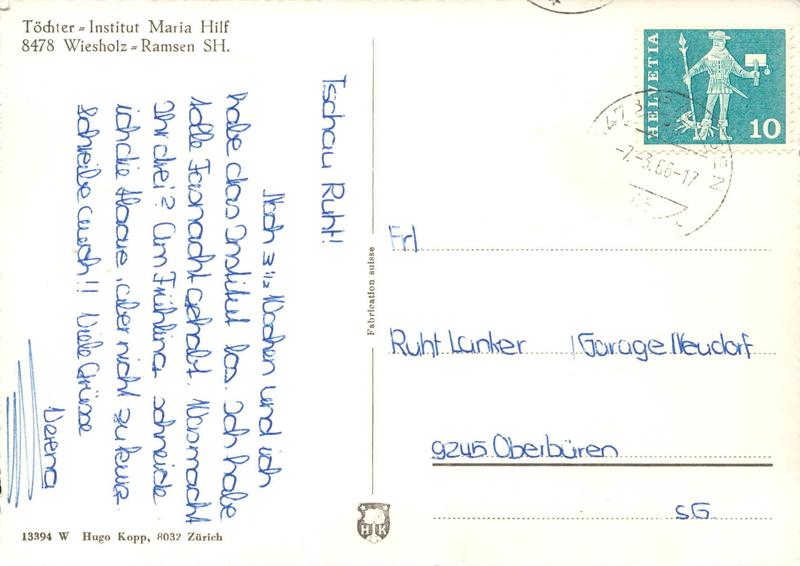 Töchter = Institut Maria Hilf
8478 Wiesholz = Ramsen SH.
Tschau Ruht!
Noch 3 1/2 Wochen und ich
habe das Institut los. Ich habe
tolle Fasnacht gehabt. Was macht
Ihr drei? Am Frühling schneide
ich die Haare, aber nicht zu kurz.
schreibe auch!! Viele Grüsse
Verena
13394 W Hugo Kopp, 8032 Zürich
Fabrication suisse
HK
HELVETIA
10
-7.-3.66-17
Frl
Ruht Lanker Garage Neudorf
9245 Oberbüren
SG